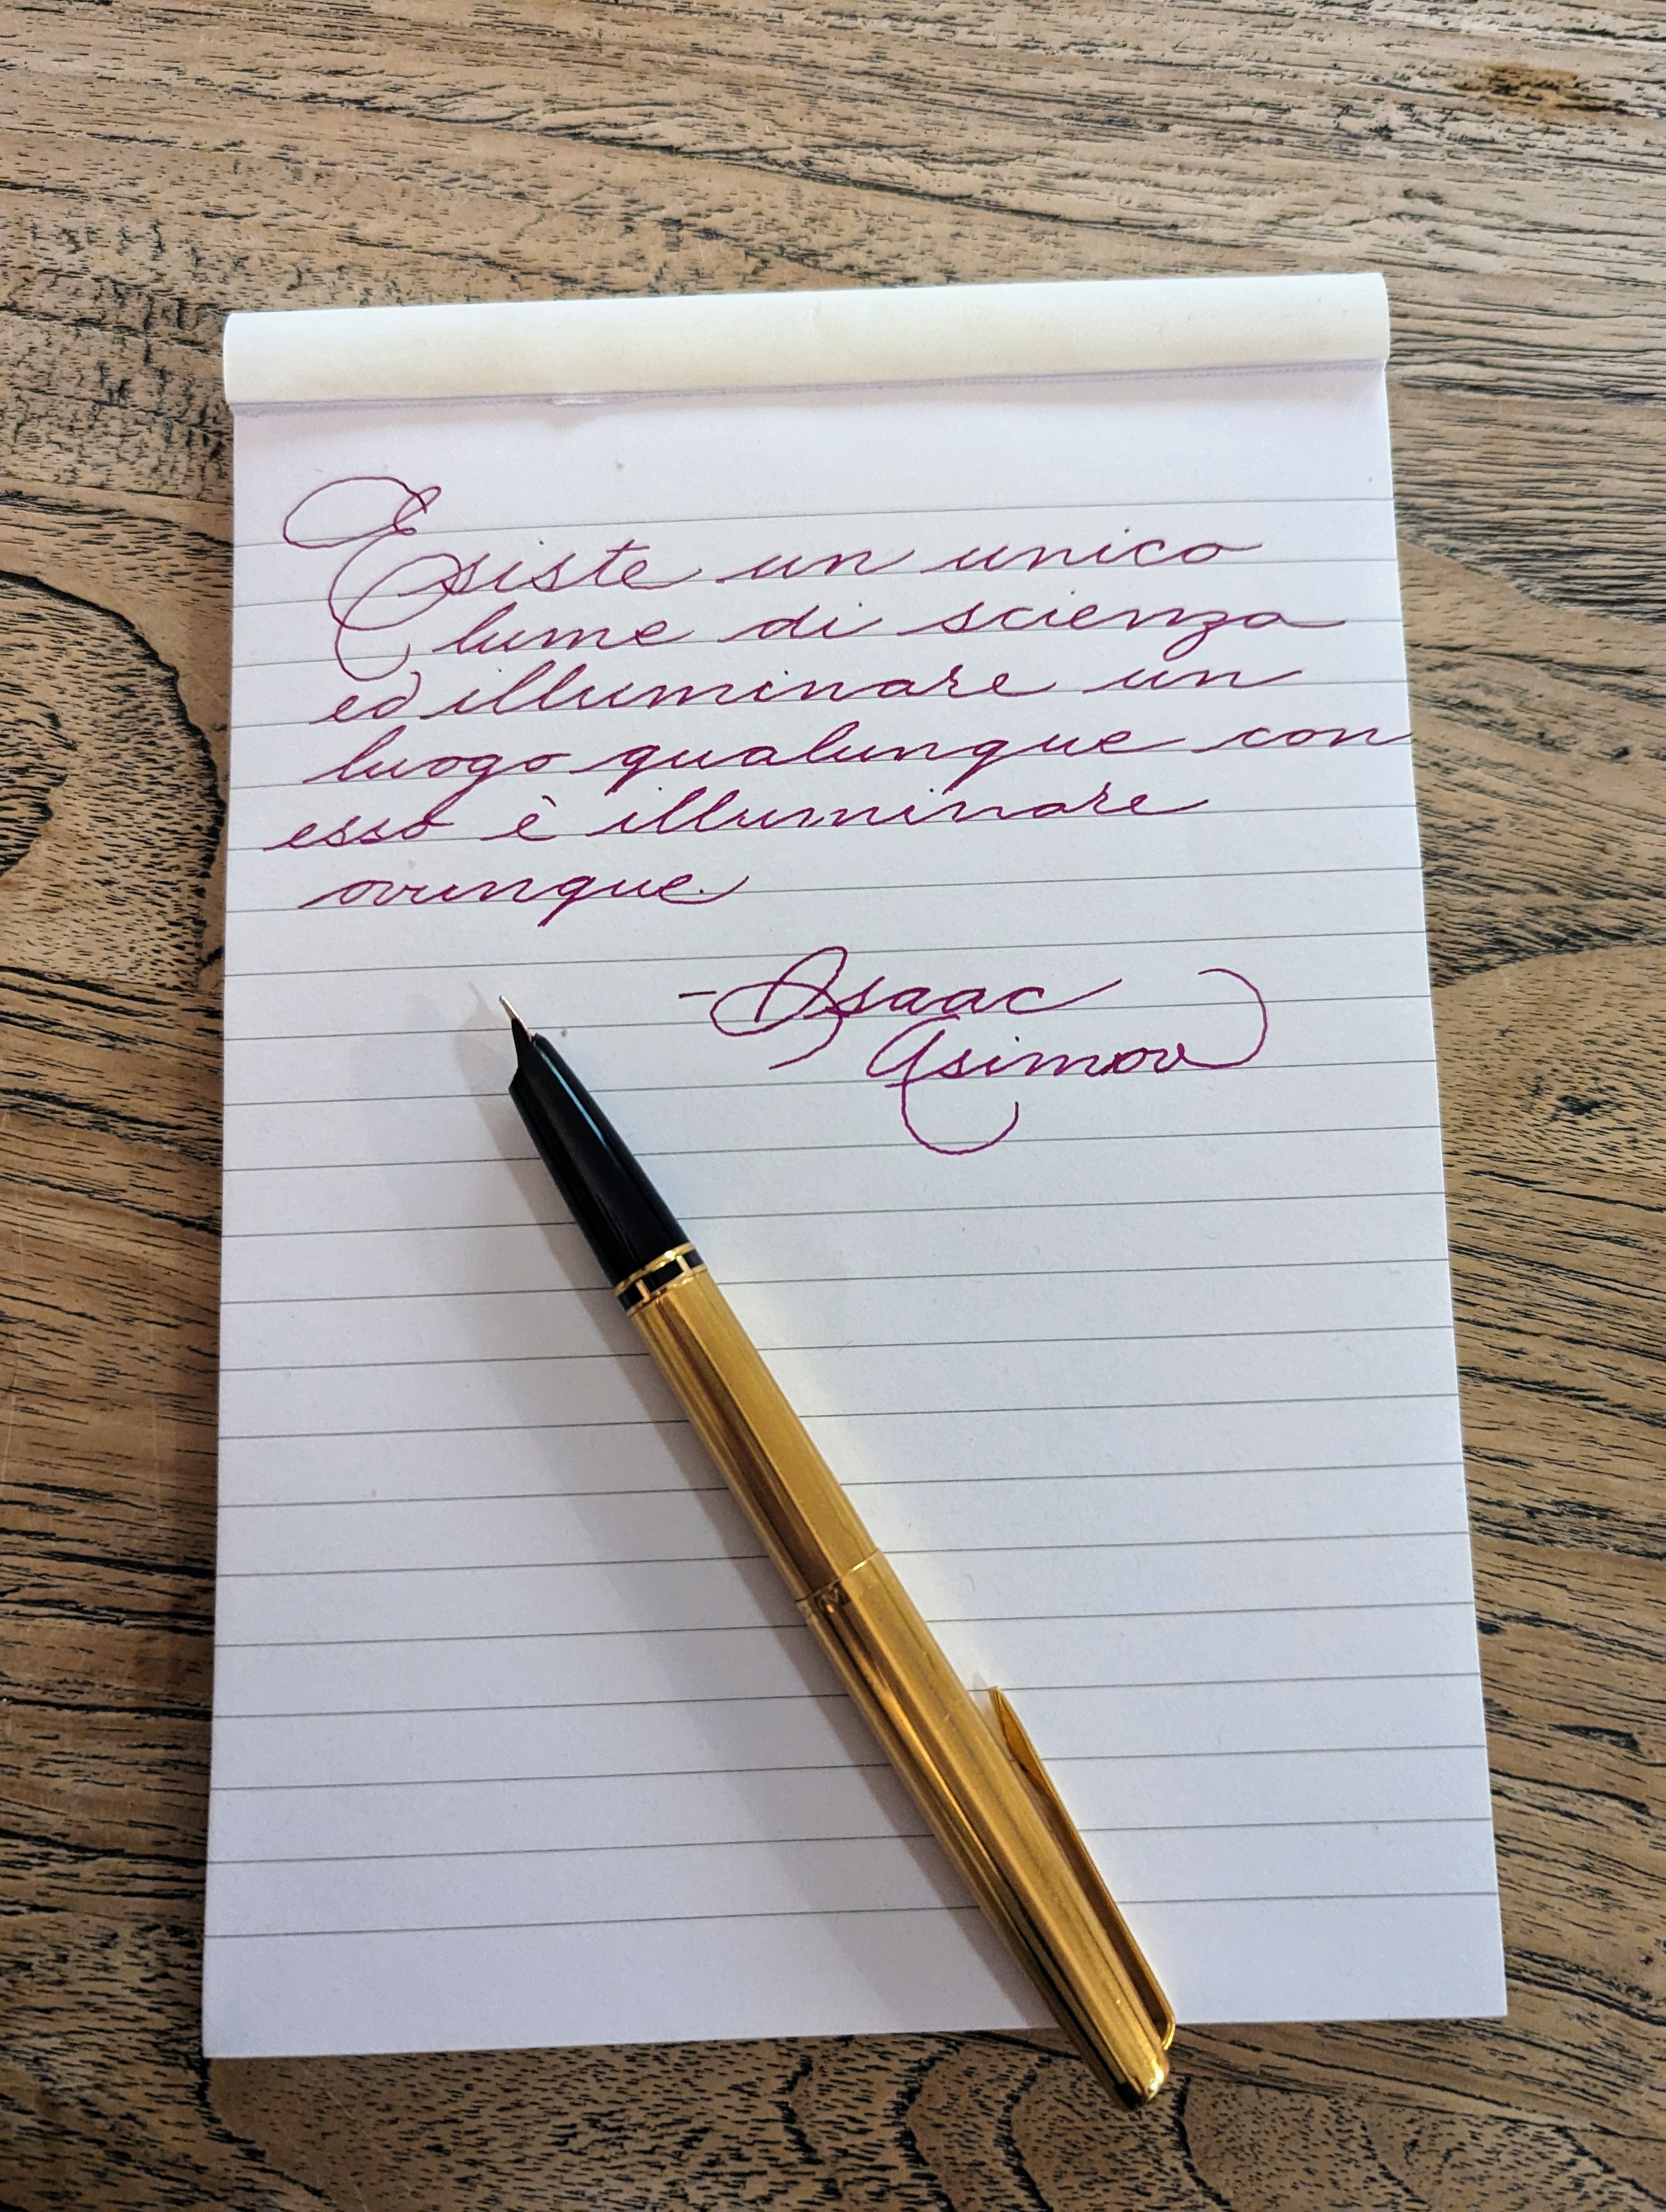 Esiste un unico
lume di scienza
ed illuminare un
luogo qualunque con
esso è illuminare
ovunque.
- Isaac
Asimov